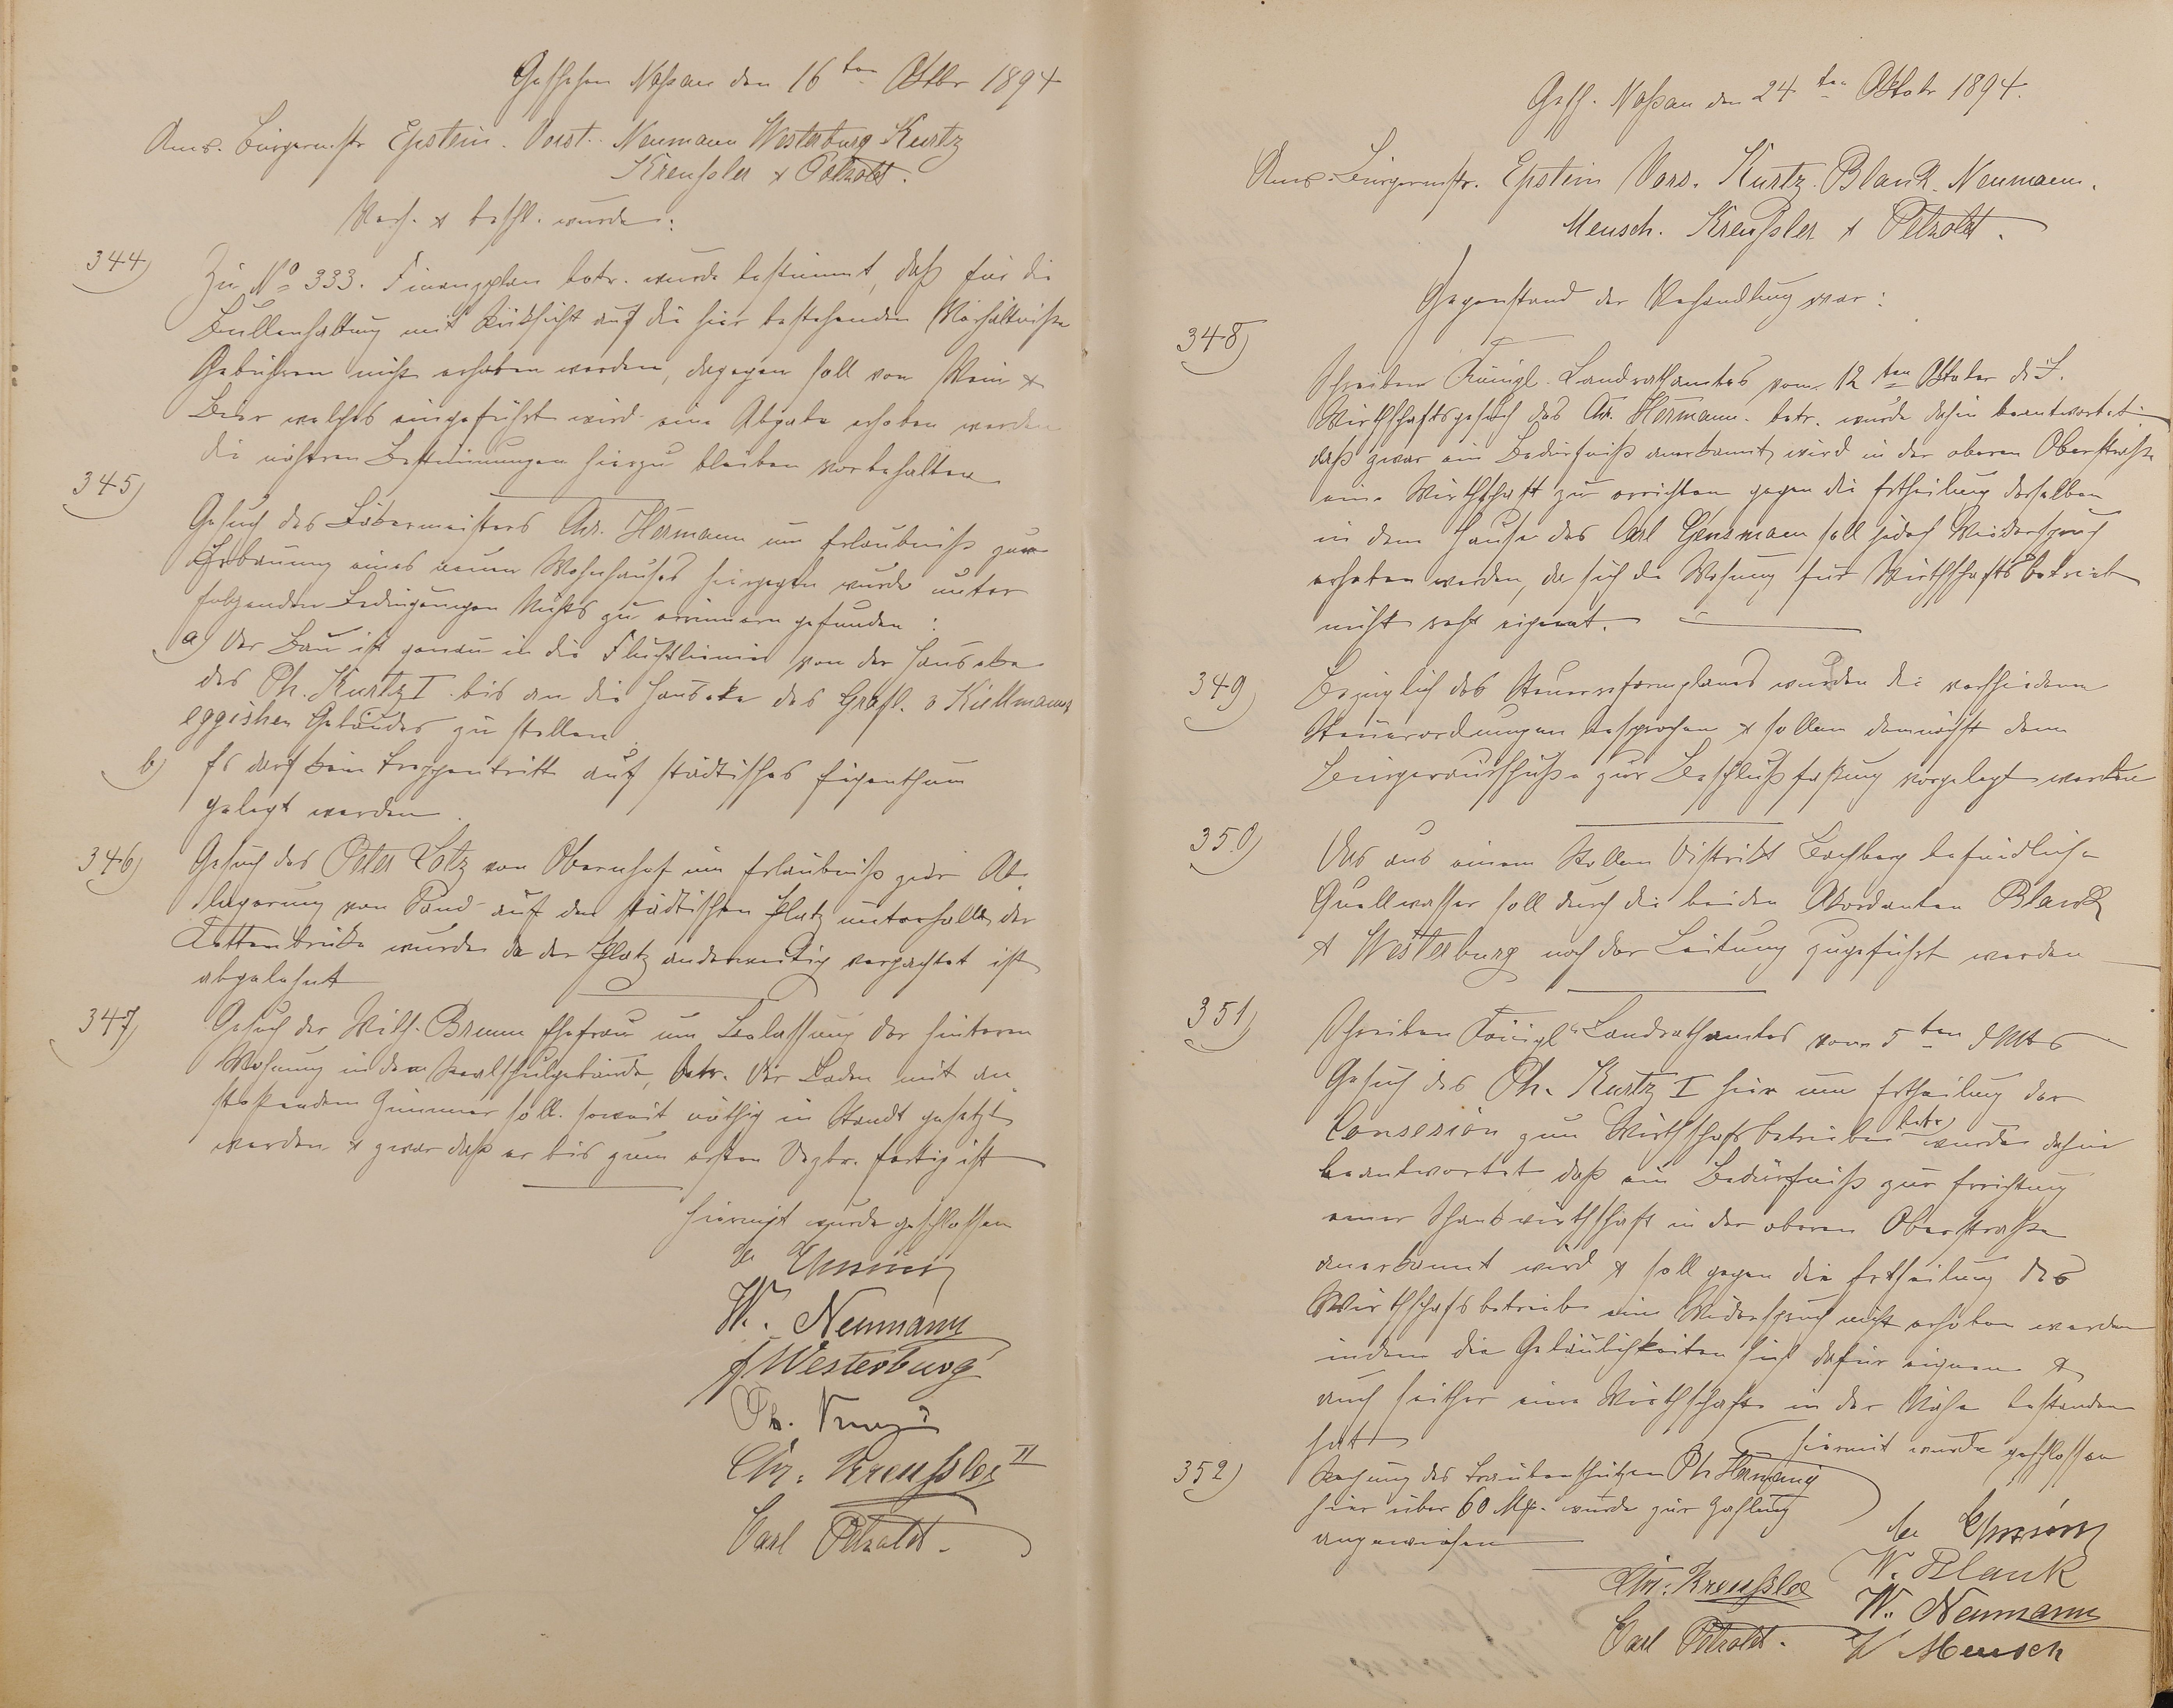 Geschehen Naßau den 16ten Oktbr 1894
Anws. Bürgermstr Epstein. Vorst. Neumann Westerburg Kurtz
Kreußler & Petzoldt.
Verh. & beschl. wurde:
344) Zu No 333. Finanzplan betr. wurde bestimmt, daß für die
Bullenhaltung mit Rücksicht auf die hier bestehenden Verhältniße
Gebühren nicht erhoben werden, dagegen soll von Wein &
Bier welches eingeführt wird eine Abgabe erhoben werden
die näheren Bestimmungen hierzu bleiben vorbehalten
345) Gesuch des Chr. Hermann um Erlaubniß zur
Erbauung eines neuen Wohnhauses hiergegen wurde unter
folgenden Bedingungen Nichts zu erinnern gefunden:
a) Der Bau ist genau in die Fluchtlinie von der Hausecke
des Ph. Kurtz I. bis an die Hauseke des Gräfl. v Kiellmanns
eggishen Gebäudes zu stellen
b) Es darf kein Treppentritt auf städtisches Eigenthum
gelegt werden.
346) Gesuch des Peter Lotz von Obernhof um Erlaubniß zur Ab
lagerung von Sand auf den städtischen Platz unterhalb der
Kettenbrüke wurde da der Platz anderweitig verpachtet ist
abgelehnt
347) Gesuch der Wilh. Bremm Ehefrau um Belassung der hinteren
Wohnung in dem Realschulgebäude, betr. Der Laden mit an
stoßendem Zimmer soll soweit nöthig in Standt gesetzt
werden & zwar daß er bis zum ersten Dezbr. fertig ist
Hiermit wurde geschlossen
W. Neumann
Westerburg
Ph.
Chr. Kreußler II
Carl Petzoldt.
Gesch. Naßau den 24ten Oktobr 1894.
Anws. Bürgermstr. Epstein Vors. Kurtz. Blank. Neumann.
Mensch. Kreußler & Petzoldt.
Gegenstand der Verhandlung war:
348) Schreiben Königl. Landrathamtes vom 12ten Oktober d. J.
Wirthschaftsgesuch des Chr. Hermann. betr. wurde dahin beantwortet
daß zwar ein Bedürfniß anerkannt wird in der oberen Oberstraße
eine Wirthschaft zu errichten gegen die Ertheilung derselben
in dem Hause des Carl soll jedoch Widerspruch
erhoben werden, da sich die Wohnung für Wirthschaftsbetrieb
nicht recht eignet.
349) Bezüglich des Steuerreformplanes wurden die verschiedenen
Steuerordnungen besprochen & sollen demnächst dem
Bürgerausschuße zur Beschlußfaßung vorgelegt werden
350) Das aus einem Stollen Distrikt befindliche
Quellwasser soll durch die beiden Akordanten Blank
& Westerburg noch der Leitung zugeführt werden
351) Schreiben Königl Landrathamtes vom 5ten d Mts
Gesuch des Ph. Kurtz I hier um Ertheilung der
Consesion zum Wirthschaftsbetriebe betr. wurde dahin
beantwortet daß ein Bedürfniß zur Errichtung
einer Schankwirthschaft in der oberen Oberstraße
anerkannt wird & soll gegen die Ertheilung des
Wirthschaftsbetriebs ein Widerspruch nicht erhoben werden
indem die Gebäulichkeiten sich dafür eignen &
auch seither eine Wirthschaft in der Nähe bestanden
hat
Hiermit wurde geschlossen
352) Rechnung des Traubenschützen Ph Hermann
hier über 60 Mk. wurde zur Zahlung
angewiesen
W. Blank
Chr. Kreußler
W. Neumann
Carl Petzoldt.
W Mensch